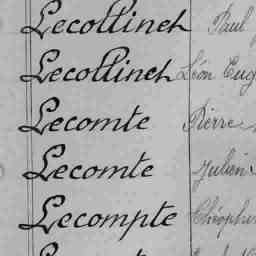 Lecollinet Paul
Lecollinet Léon Eug
Lecomte Pierre
Lecomte Julien
Lecompte Théophi